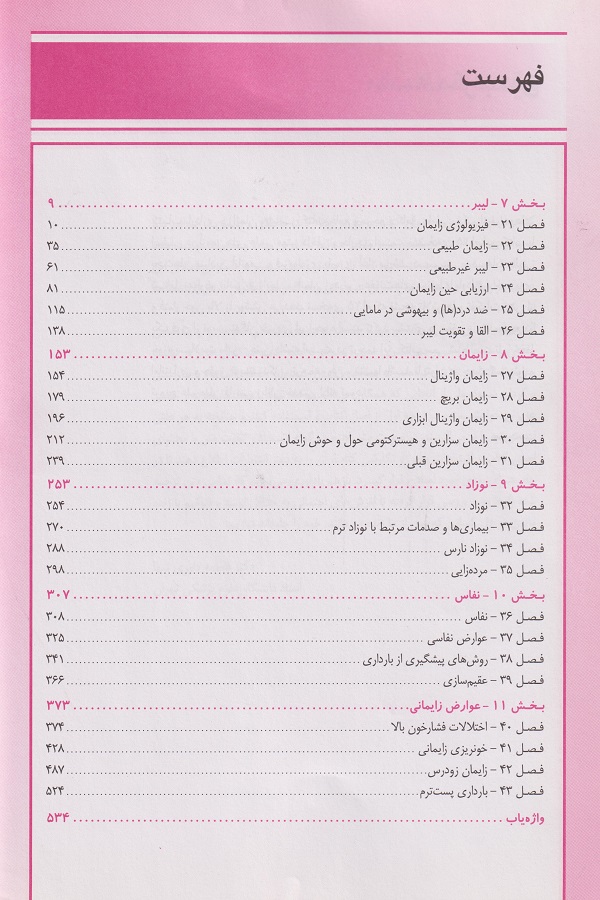 فهرست
بخش ۷ - لیبر ۹
فصل ۲۱ - فیزیولوژی زایمان ۱۰
فصل ۲۲ - زایمان طبیعی ۳۵
فصل ۲۳ - لیبر غیرطبیعی ۶۱
فصل ۲۴ - ارزیابی حین زایمان ۸۱
فصل ۲۵ - ضد درد(ها) و بیهوشی در مامایی ۱۱۵
فصل ۲۶ - القا و تقویت لیبر ۱۳۸
بخش ۸ - زایمان ۱۵۳
فصل ۲۷ - زایمان واژینال ۱۵۴
فصل ۲۸ - زایمان بریچ ۱۷۹
فصل ۲۹ - زایمان واژینال ابزاری ۱۹۶
فصل ۳۰ - زایمان سزارین و هیسترکتومی حول و حوش زایمان ۲۱۲
فصل ۳۱ - زایمان سزارین قبلی ۲۳۹
بخش ۹ - نوزاد ۲۵۳
فصل ۳۲ - نوزاد ۲۵۴
فصل ۳۳ - بیماری‌ها و صدمات مرتبط با نوزاد ترم ۲۷۰
فصل ۳۴ - نوزاد نارس ۲۸۸
فصل ۳۵ - مرده‌زایی ۲۹۸
بخش ۱۰ - نفاس ۳۰۷
فصل ۳۶ - نفاس ۳۰۸
فصل ۳۷ - عوارض نفاسی ۳۲۵
فصل ۳۸ - روش‌های پیشگیری از بارداری ۳۴۱
فصل ۳۹ - عقیم‌سازی ۳۶۶
بخش ۱۱ - عوارض زایمانی ۳۷۳
فصل ۴۰ - اختلالات فشارخون بالا ۳۷۴
فصل ۴۱ - خونریزی زایمانی ۴۲۸
فصل ۴۲ - زایمان زودرس ۴۸۷
فصل ۴۳ - بارداری پست‌ترم ۵۲۴
واژه‌یاب ۵۳۴